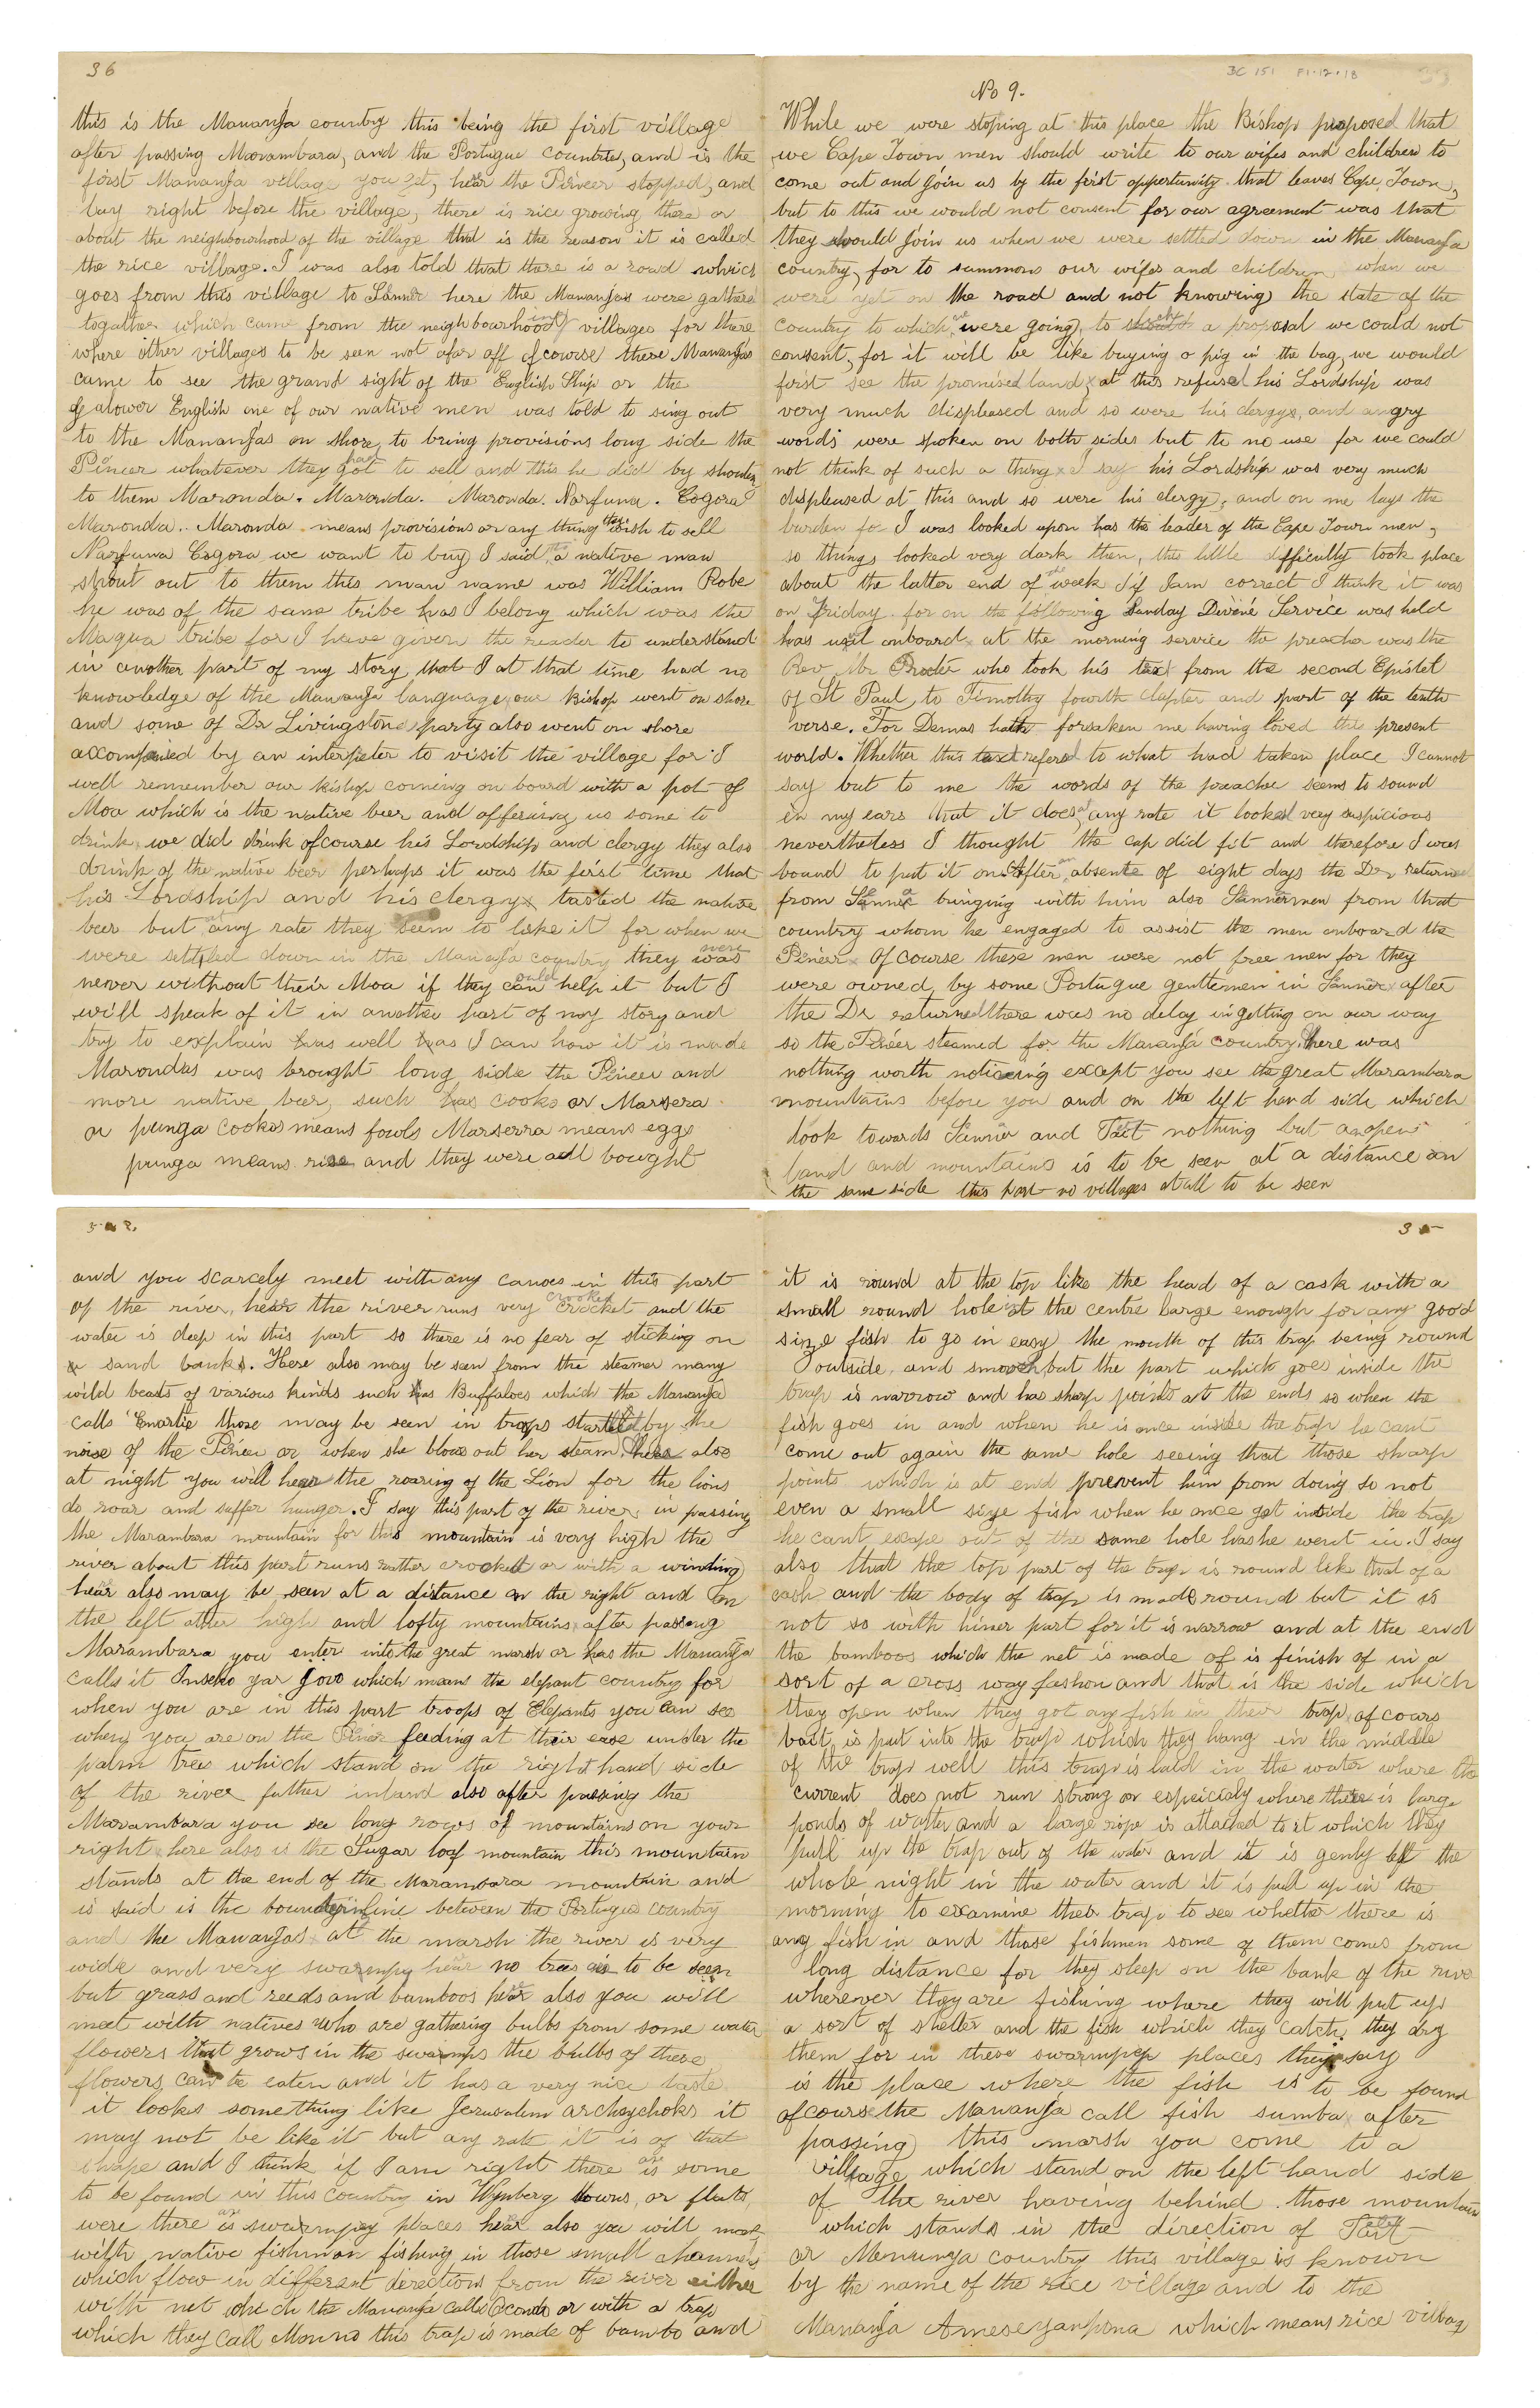 3C 151 F1.12.18
33
No 9.
While we were stoping at this place the Bishop proposed that
we Cape Town men should write to our wifes and children to
come out and join us by the first oppertunity that leaves Cape Town,
but to this we would not consent for our agreement was that
they should join us when we were settled down in the Mananja
country, for to summons our wifes and children when we
were yet on the road and not knowing the state of the
country to which we were going, to such a proposal we could not
consent, for it will be like buying a pig in the bag, we would
first see the promised land, at this refusel his Lordship was
very much displeased and so were his clergys, and angry
words were spoken on both sides but to no use for we could
not think of such a thing I say his Lordship was very much
displeased at this and so were his clergy, and on me lays the
burden for I was looked upon has the leader of the Cape Town men,
so things looked very dark then, this little difficulty took place
about the latter end of the week if I am correct I think it was
on Friday for on the following Sunday Divene Service was held
has usal onboard at the morning service the preacher was the
Rev Mr Procter who took his tex from the second Epistel
of St Paul to Timothy fourth chapter and part of the tenth
verse. For Demas hath forsaken me having loved this present
world. Whether this text refered to what had taken place I cannot
say but to me the words of the preacher seems to sound
in my ears that it does, at any rate it looked very suspicious
nevertheless I thought the cap did fit and therefore I was
bound to put it on. After an absente of eight days the Dr returned
from Senna bringing with him also Sennarmen from that
country whom he engaged to assist the men onboard the
Pineer Of course these men were not free men for they
were owned by some Portugue gentlemen in Senna after
the Dr returned there was no delay in getting on our way
so the Pineer steamed for the Mananja country, there was
nothing worth noticeing except you see the great Marambara
mountains before you and on the left hand side which
look towards Senna and Tait nothing but an open
land and mountains is to be seen at a distance on
the same side this part no villages at all to be seen
342.
and you scarcely meet with any canoes in this part
of the river, hear the river runs very crocket crooked and the
water is deep in this part so there is no fear of sticking on
sand banks. Here also may be seen from the steamer many
wild beasts of various kinds such has Buffaloes which the Mananja
calls Enartie those may be seen in troops startled by the
noise of the Pineer or when she blows out her steam, here also
at night you will hear the roaring of the Lion for the lions
do roar and suffer hunger. I say this part of the river in passing
the Marambara mountain for this mountain is very high the
river about this part runs rather crocked or with a winding
hear also may be seen at a distance on the right and on
the left other high and lofty mountains, after passing
Marambara you enter into the great marsh or has the Mananja
calls it Inseno yar Jovo which means the elepant country for
when you are in this part troops of Elepants you can see
when you are on the Pineer feeding at their ease under the
palm trees which stand on the right hand side
of the river futher inland also after passing the
Marambara you see long rows of mountains on your
right here also is the Sugar loaf mountain this mountain
stands at the end of the Marambara mountain and
is said is the boundery line between the Portugue country
and the Mananjas at the marsh the river is very
wide and very swarmpy hear no trees is to be seen
but grass and reeds and bamboos hear also you will
meet with natives who are gathering bulbs from some water
flowers that grows in the swarmps the bulbs of these
flowers can be eaten and it has a very nice taste
it looks something like Jerusalem archsychoks it
may not be like it but any rate it is of that
shape and I think if I am right there is some
to be found in this country in Wynberg towns, or flats
were there is swarmpy places hear also you will meet
with native fishmon fishing in those small channels
which flow in different derections from the river either
with net which the Mananja calls Oconda or with a trap
which they call Monno this trap is made of bambo and
35
it is round at the top like the head of a cask with a
small round hole at the centre large enough for any good
size fish to go in easy the mouth of this trap being round
outside and smooth but the part which goes inside the
trap is narrow and has sharp points at the ends so when the
fish goes in and when he is once inside the trap he cant
come out again the same hole seeing that those sharp
points which is at end prevent him from doing so not
even a small size fish when he once get inside the trap
he cant escape out of the same hole has he went in. I say
also that the top part of the trap is round like that of a
cask and the body of trap is made round but it is
not so with hiner part for it is narrow and at the end
the bamboos which the net is made of is finish of in a
sort of a cross way fashon and that is the side which
they open when they got any fish in their trap of cours
bait is put into the trap which they hang in the middle
of the trap well this trap is laid in the water where the
current does not run strong or espeicialy where there is large
ponds of water and a large rope is attached to it which they
pull up the trap out of the water and it is genly left the
whole night in the water and it is pull up in the
morning to examine ther trap to see whether there is
any fish in and those fishmen some of them comes from
long distance for they sleep on the bank of the rive
wherever they are fishing where they will put up
a sort of shelter and the fish which they catch they dry
them for in these swarmpep places they say
is the place where the fish is to be found
ofcourse the Mananja call fish sumba after
passing this marsh you come to a
village which stand on the left hand side
of the river having behind those mountain
which stands in the direction of Tait
or Manunga country this village is known
by the name of the rice village and to the
Mananja Ameseyanpona which means rice village
36
this is the Mananja country this being the first village
after passing Marambara, and the Portugue countrie, and is the
first Mananja village you get, hear the Pineer stopped, and
lay right before the village, there is rice growing there or
about the neighbourhood of the village that is the reason it is called
the rice village. I was also told that there is a road which
goes from this village to Senna here the Mananjas were gathered
togather which came from the neighbourhood villages for there
where other villages to be seen not afar off ofcourse these Mananjas
came to see the grand sight of the English Ship or the
of alower English one of our native men was told to sing out
to the Mananjas on shore, to bring provisions long side the
Pineer whatever they had got to sell and this he did by shouten
to them Maronda. Maronda. Maronda. Narfuna. Cogora
Maronda. Maronda means provisions or any thing they wish to sell
Narfuna Cogora we want to buy I said a native man
shout out to them this man name was William Robe
he was of the same tribe has I belong which was the
Maqua tribe for I have given the reader to understand
in another part of my story that I at that time had no
knowledge of the Mananja language, our Bishop went on shore
and some of Dr Livingstone party also went on shore
accompined by an interpeter to visit the village for I
well remember our Bishop coming on board with a pot of
Moa which is the native beer and offering us some to
drink, we did drink ofcourse his Lordship and clergy they also
drink of the native beer perhaps it was the first time that
his Lordship and his clergy tasted the native
beer but at any rate they seem to like it for when we
were settled down in the Mananja country they was were
never without their Moa if they could help it but I
will speak of it in another part of my story and
try to explain has well has I can how it is made
Marondas was brought long side the Pineer and
more native beer, such has cooks or Marsera
or punga cookos means fowls Marserra means eggs
punga means rise and they were all bought